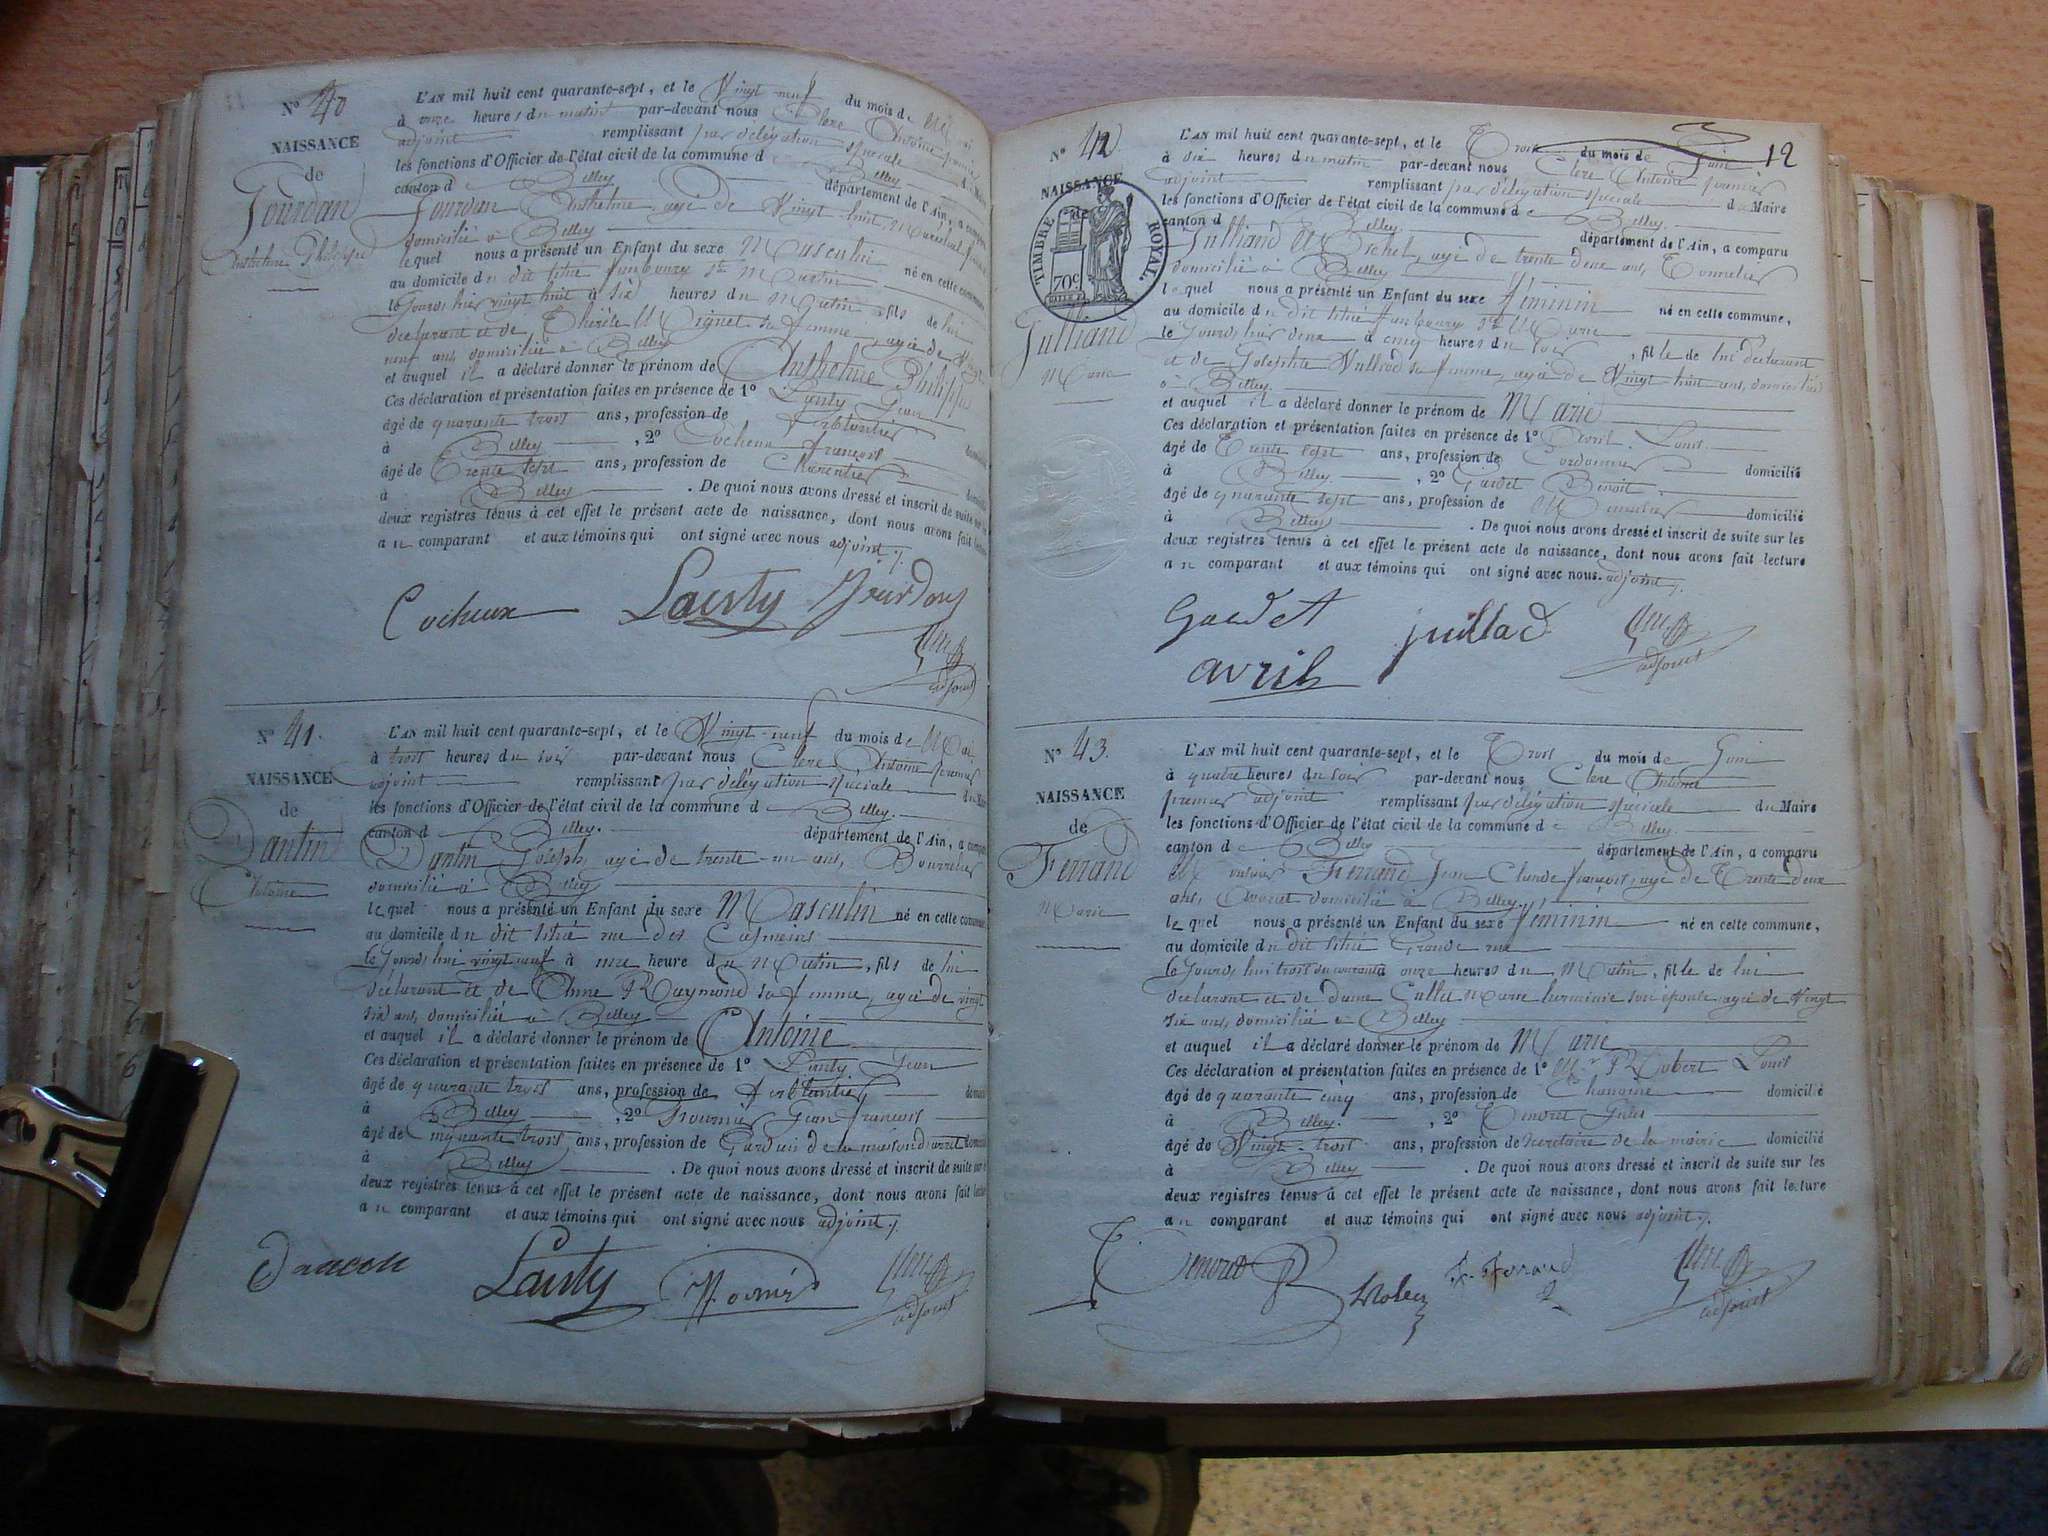 N° 40
NAISSANCE
de
Jourdan
Anthelme Philippe
L'AN mil huit cent quarante-sept, et le Vingt-neuf du mois de Mai
à onze heures du matin par-devant nous Clerc Antoine premier
adjoint remplissant par délégation spéciale du Maire
les fonctions d'Officier de l'état civil de la commune de Belley
canton de Belley département de l'Ain, a comparu
Jourdan Anthelme, agé de Vingt huit, Maréchal
domicilié à Belley
lequel nous a présenté un Enfant du sexe Masculin né en cette commune
au domicile du dit situé faubourg St Martin
le Jourd'hier vingt huit à six heures du Matin, fils de lui
déclarant et de Thérèse Mignet sa femme, agée de Vingt
neuf ans, domiciliée à Belley
et auquel il a déclaré donner le prénom de Anthelme Philippe
Ces déclaration et présentation faites en présence de 1° Lanty Jean
âgé de quarante trois ans, profession de ferblantier
à Belley, 2° Cocheux françois domicilié
âgé de Trente sept ans, profession de Charpentier
à Belley. De quoi nous avons dressé et inscrit de suite sur les
deux registres tenus à cet effet le présent acte de naissance, dont nous avons fait lecture
au comparant et aux témoins qui ont signé avec nous adjoint ./.
Cocheux Lanty Jourdan
adjoint
N° 41
NAISSANCE
de
Dantin
Antoine
L'AN mil huit cent quarante-sept, et le Vingt-neuf du mois de Mai
à trois heures du soir par-devant nous Clerc Antoine premier
adjoint remplissant par délégation spéciale du Maire
les fonctions d'Officier de l'état civil de la commune de Belley.
canton de Belley. département de l'Ain, a comparu
Dantin Joseph, agé de trente-un ans, Bourrelier
domicilié à Belley
lequel nous a présenté un Enfant du sexe Masculin né en cette commune
au domicile du dit situé rue des
le Jourd'hui vingt neuf à une heure du Matin, fils de lui
déclarant et de Anne Raymond sa femme, agée de vingt
six ans, domiciliée à Belley
et auquel il a déclaré donner le prénom de Antoine
Ces déclaration et présentation faites en présence de 1° Lanty Jean
âgé de quarante trois ans, profession de ferblantier domicilié
à Belley, 2° Fournier Jean françois
âgé de Cinquante trois ans, profession de Gardien de la maison d'arrêt domicilié
à Belley. De quoi nous avons dressé et inscrit de suite sur les
deux registres tenus à cet effet le présent acte de naissance, dont nous avons fait lecture
au comparant et aux témoins qui ont signé avec nous adjoint ./.
Lanty
adjoint
12
N° 42
NAISSANCE
de
TIMBRE ROYAL.
70c
Julliand
Marie
L'AN mil huit cent quarante-sept, et le Trois du mois de Juin
à six heures du matin par-devant nous Clerc Antoine premier
adjoint remplissant par délégation spéciale du Maire
les fonctions d'Officier de l'état civil de la commune de Belley
canton d Belley. département de l'Ain, a comparu
Julliand Michel, agé de trente deux ans, Tonnelier
domicilié à Belley
lequel nous a présenté un Enfant du sexe féminin né en cette commune,
au domicile du dit situé faubourg St Marie
le Jourd'hier deux à cinq heures du soir, fille de lui déclarant
et de Josephte Vulliod sa femme, agée de Vingt huit ans, domiciliée
à Belley.
et auquel il a déclaré donner le prénom de Marie
Ces déclaration et présentation faites en présence de 1° Avril Louis
âgé de Trente sept ans, profession de Cordonnier domicilié
à Belley, 2° Gaudet Benoit
âgé de quarante sept ans, profession de Menuisier domicilié
à Belley. De quoi nous avons dressé et inscrit de suite sur les
deux registres tenus à cet effet le présent acte de naissance, dont nous avons fait lecture
au comparant et aux témoins qui ont signé avec nous. adjoint ./.
Gaudet juillad
avril adjoint
N° 43.
NAISSANCE
de
Ferrand
Marie
L'AN mil huit cent quarante-sept, et le Trois du mois de Juin
à quatre heures du soir par-devant nous Clerc Antoine
premier adjoint remplissant par délégation spéciale du Maire
les fonctions d'Officier de l'état civil de la commune de Belley.
canton de Belley département de l'Ain, a comparu
Ferrand Jean Claude françois, agé de Trente deux
ans, Avocat domicilié à Belley
lequel nous a présenté un Enfant du sexe féminin né en cette commune,
au domicile du dit situé Grande rue
le Jourd'hui trois du courant à onze heures du Matin, fille de lui
déclarant et de dame Cullet Marie herminie son épouse agée de Vingt
six ans, domiciliée à Belley
et auquel il a déclaré donner le prénom de Marie
Ces déclaration et présentation faites en présence de 1° Mr Robert Louis
âgé de quarante cinq ans, profession de Chanoine domicilié
à Belley. , 2° Tenoret Jules
âgé de Vingt-trois ans, profession de secrétaire de la mairie domicilié
à Belley. De quoi nous avons dressé et inscrit de suite sur les
deux registres tenus à cet effet le présent acte de naissance, dont nous avons fait lecture
au comparant et aux témoins qui ont signé avec nous adjoint ./.
Tenoret Ferrand
adjoint